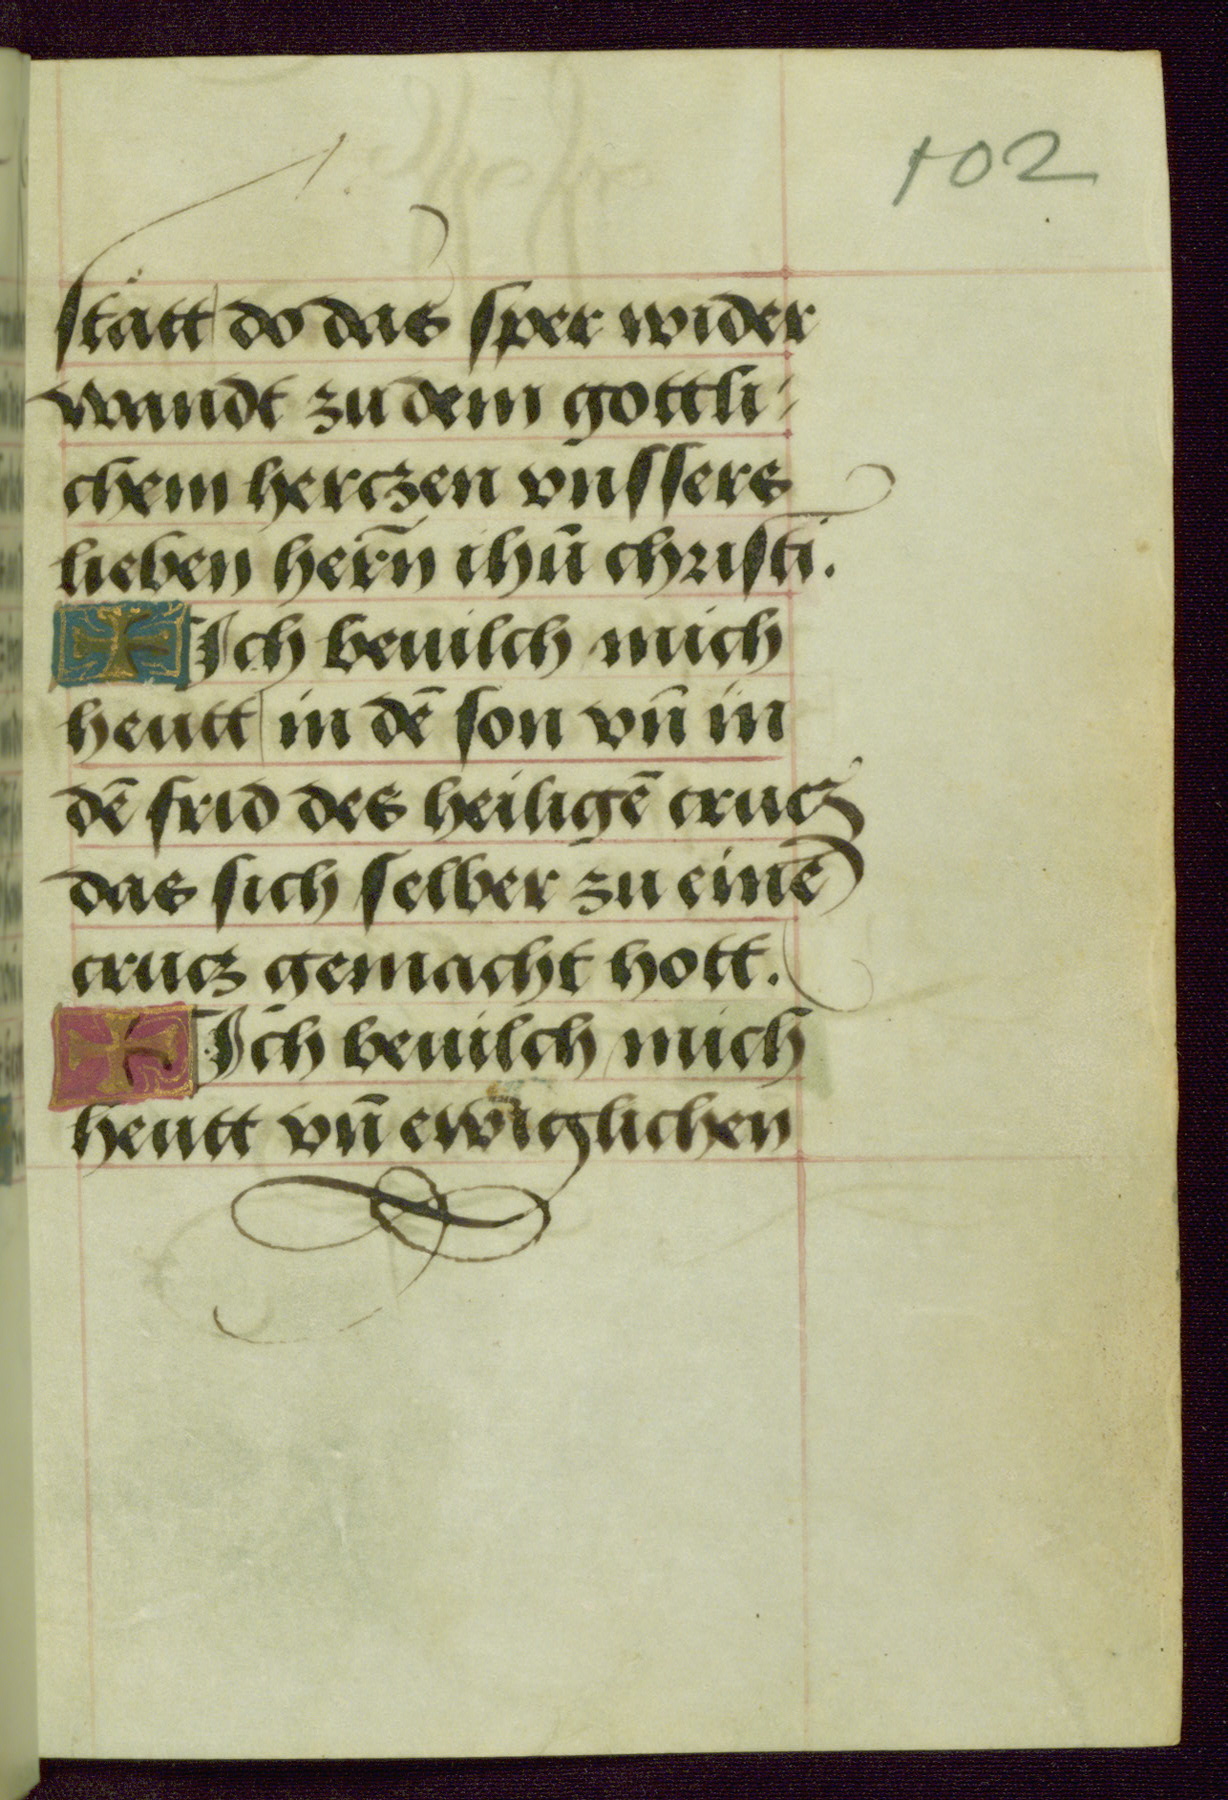 102
stått do das sper wider
wandt zu dem gottli-
chem herczen vnssers
lieben hern̄ ihū christi.
Ich beuilch mich
heutt in dē son vn̄ in
dē frid des heiligē crucz
das sich selber zu einē
crucz gemacht hott.
Ich beuilch mich
heutt vn̄ ewiglichen